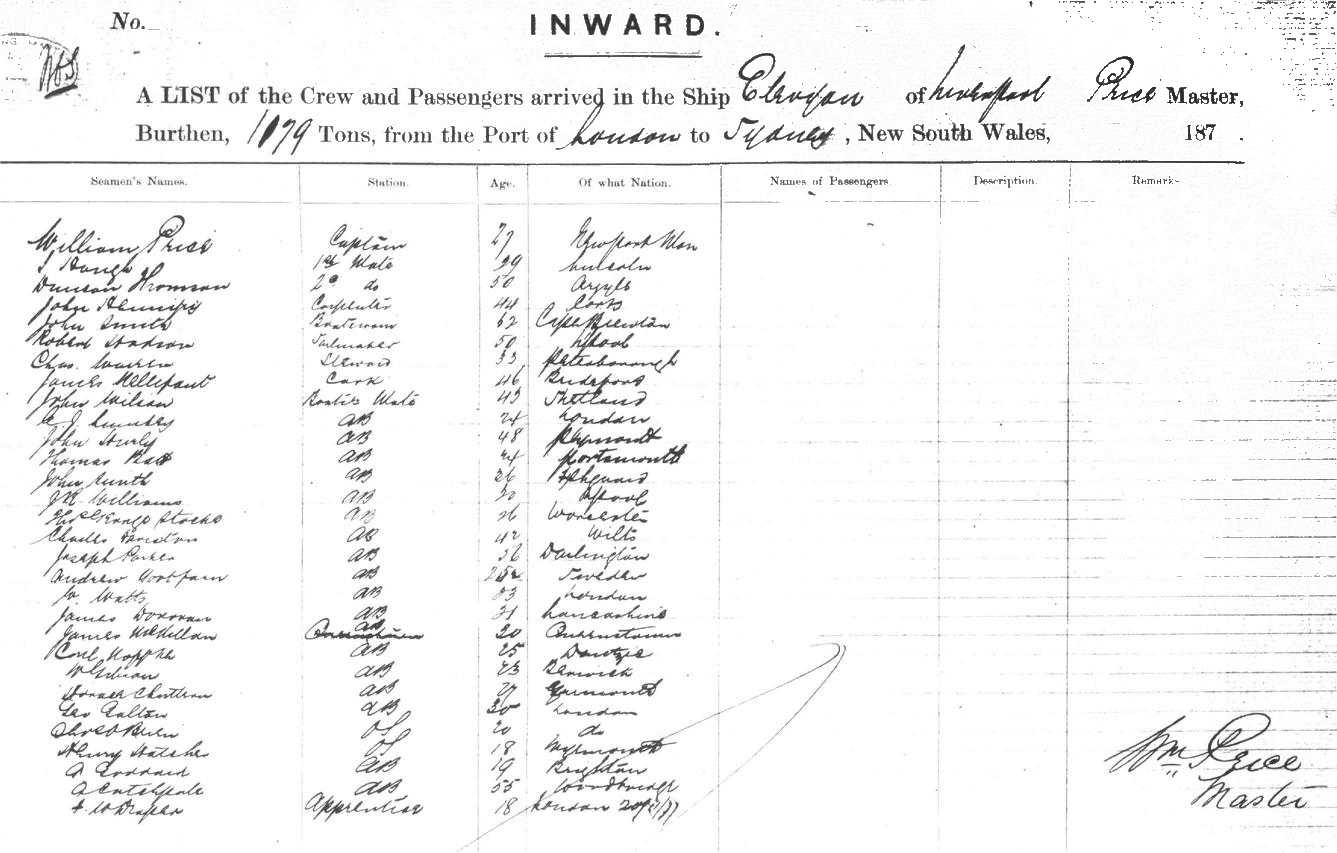 No.
INWARD.
A LIST of the Crew and Passengers arrived in the Ship of Liverpool Price Master,
Burthen, 1079 Tons, from the Port of London to Sydney, New South Wales, 187 .
Seamen's Names. Station. Age. Of what Nation. Names of Passengers. Description. Remarks
William Price Captain 27 Newport Mon
1st Mate 29 Lincoln
Duncan Thomson 2d do 50 Argyle
John Carpenter 44 Cork
John Smith Boatswain 62 Cape Breton
Robert Hudson Sailmaker 50 Lpool
Chas. Warren Steward 33 Peterborough
James Mellefant Cook 46
John Wilson Mate 43 Shetland
AB 24 London
John Hurly AB 48 Plymouth
Thomas AB 24 Portsmouth
John Smith AB 26
J R Williams AB 20 Lpool
Stocks AB 26 Worcester
Charles AB 42 Wilts
Joseph Parker AB Darlington
Andrew AB Sweden
W Watts AB 23 London
James Donovan AB 21 Lancashire
James McMillan AB 20 Queenstown
Carl AB 25 Dantzic
AB 23 Berwick
Horace AB 27 Yarmouth
Geo Galton AB 30 London
OS 20 do
Henry Hatcher OS 18 Weymouth
A Goddard AB 19 Brighton
A Catchpole AB 55 Woodbridge
F. W Draper Apprentice 18 London
Wm Price
Master